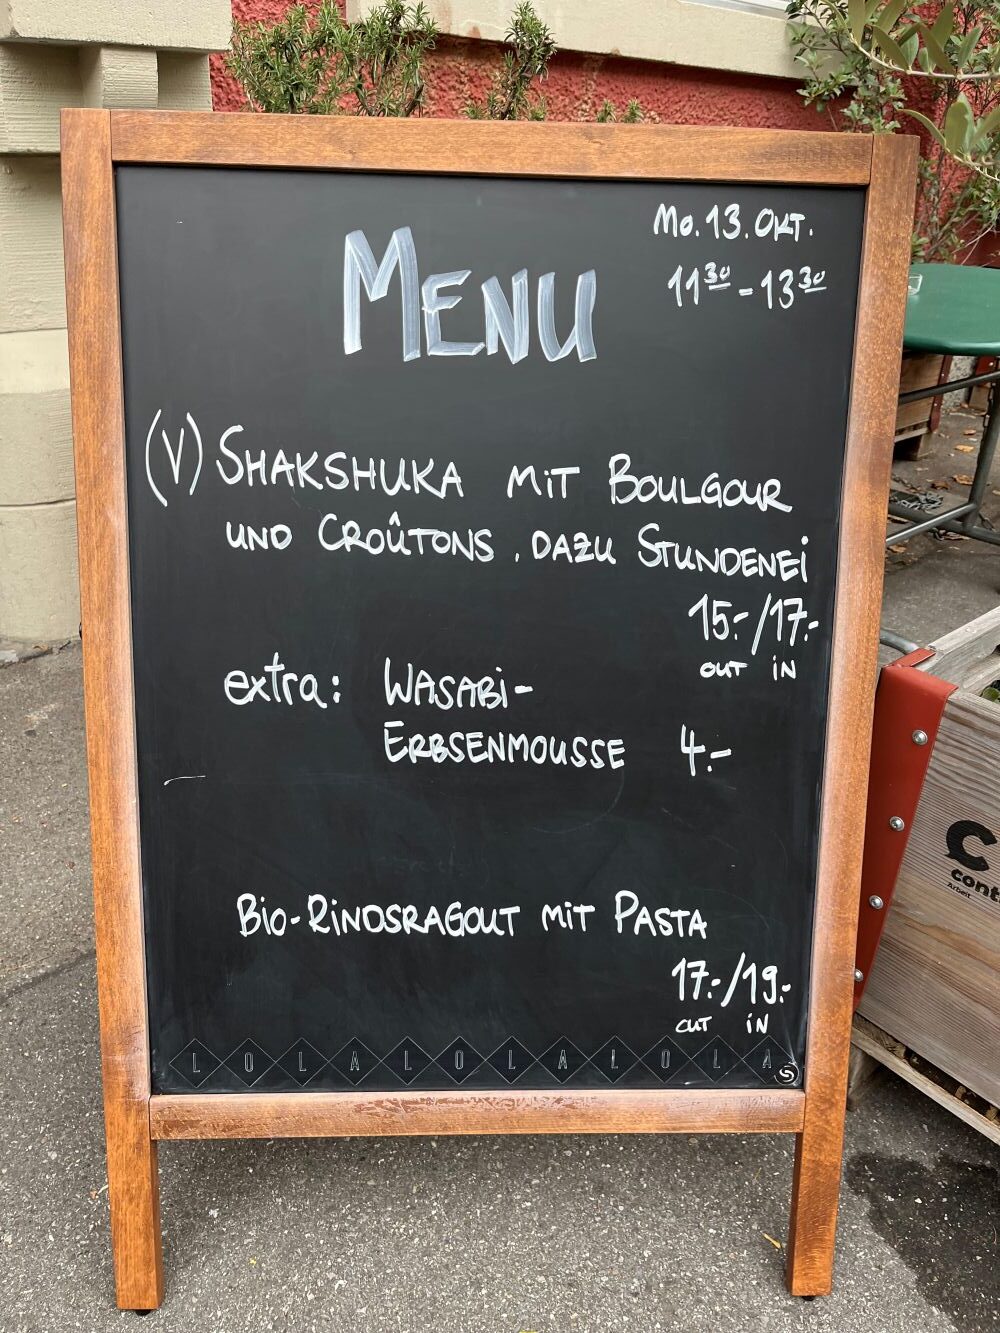 Mo. 13. OKT.
11³⁰ - 13³⁰
MENU
(V) SHAKSHUKA MiT BOULGOUR
UND CROÛTONS, DAZU STUNDENEi
15.-/17.-
OUT iN
extra: WASABi-
ERBSENMOUSSE 4.-
BiO-RiNDSRAGOUT MiT PASTA
17.-/19.-
OUT iN
LOLALOLALOLA
cont
Arbeit